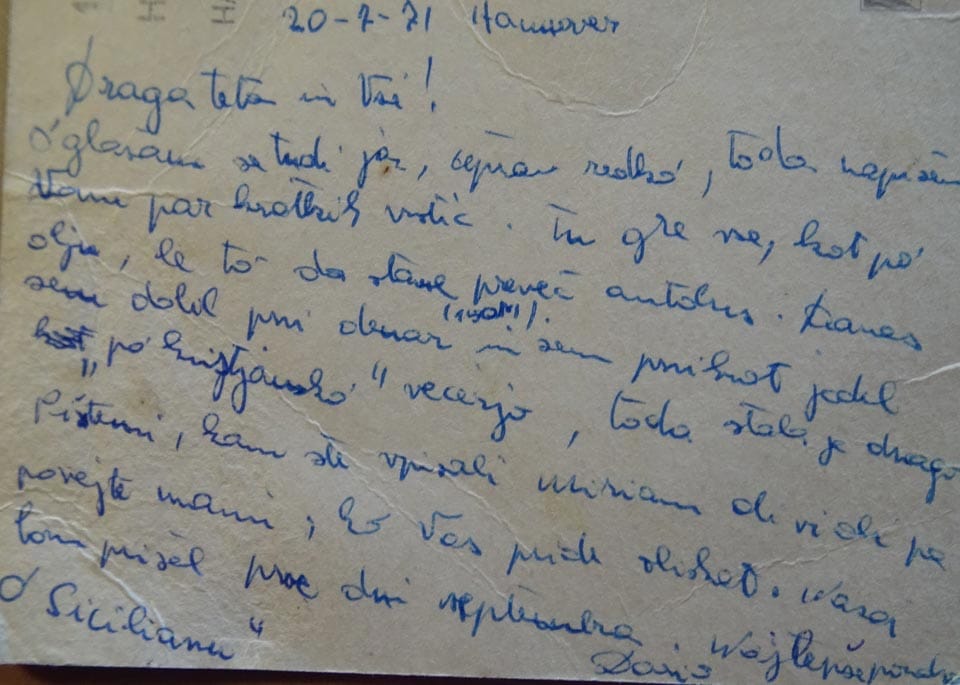 20-7-71 Hannover
Draga teta in Vsi!
Oglasam se tudi jaz, čeprav redko, toda napišem
Vam par kratkih vrstic. Tu gre vse, kot po
olju, le to da stane preveč autobus. Danes
sem dobil prvi denar (150M). in sem prikrat jedel
"po kristjansko" večerjo, toda stala je drago
Pištemi, kam ste vpisali Miriam de vidi pa
povejte mami, ko Vas pride obiskat. Nazaj
bom prišel prve dni septembra. Najlepše pozdrave
O "Siciliano" Dario